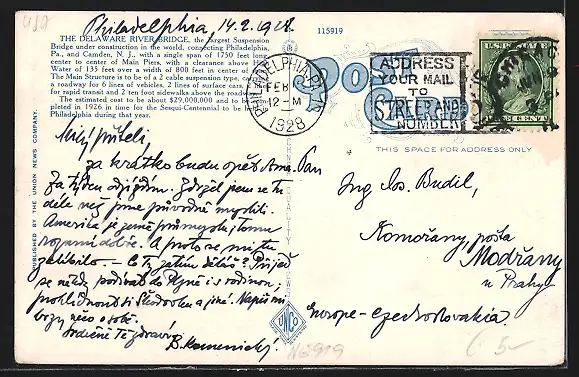 Philadelphia, 14.2.1928
115919
THE DELAWARE RIVER BRIDGE, the largest Suspension
Bridge under construction in the world, connecting Philadelphia,
Pa., and Camden, N. J., with a single span of 1750 feet long
center to center of Main Piers, with a clearance above
Water of 135 feet over a width of 800 feet in center of
The Main Structure is to be of a 2 cable suspension type
a roadway for 6 lines of vehicles, 2 lines of surface cars,
for rapid transit and 2 ten foot sidewalks above the
The estimated cost to be about $29,000,000 and to be
pleted in 1926 in time for the Sesqui-Centennial to be
Philadelphia during that year.
PHILADELPHIA, PA.
FEB
12-M
1928
ADDRESS
YOUR MAIL
TO
STREET AND
NUMBER
POST CARD
THIS SPACE FOR ADDRESS ONLY
PUBLISHED BY THE UNION NEWS COMPANY.
QUALITY
UNCO
Milý příteli,
za krátko budu opět
Za týden odjíždím. Zdržel jsem se tu
déle než jsme původně myslili.
Amerika je země průmyslu, tomu
rozumí dobře. A proto se mi tu
zalíbilo. – Co Ty zatím děláš? Přijeď
se někdy podívat do Plzně i s rodinou,
prohlédnouti si Škodovku a jiné. Napiš mi
brzy něco o sobě.
Srdečně Tě zdraví
B. Kamenický.
Ing. Jos. Budil,
Komořany, pošta
Modřany
u Prahy
Europe - Czechoslovakia.
115919